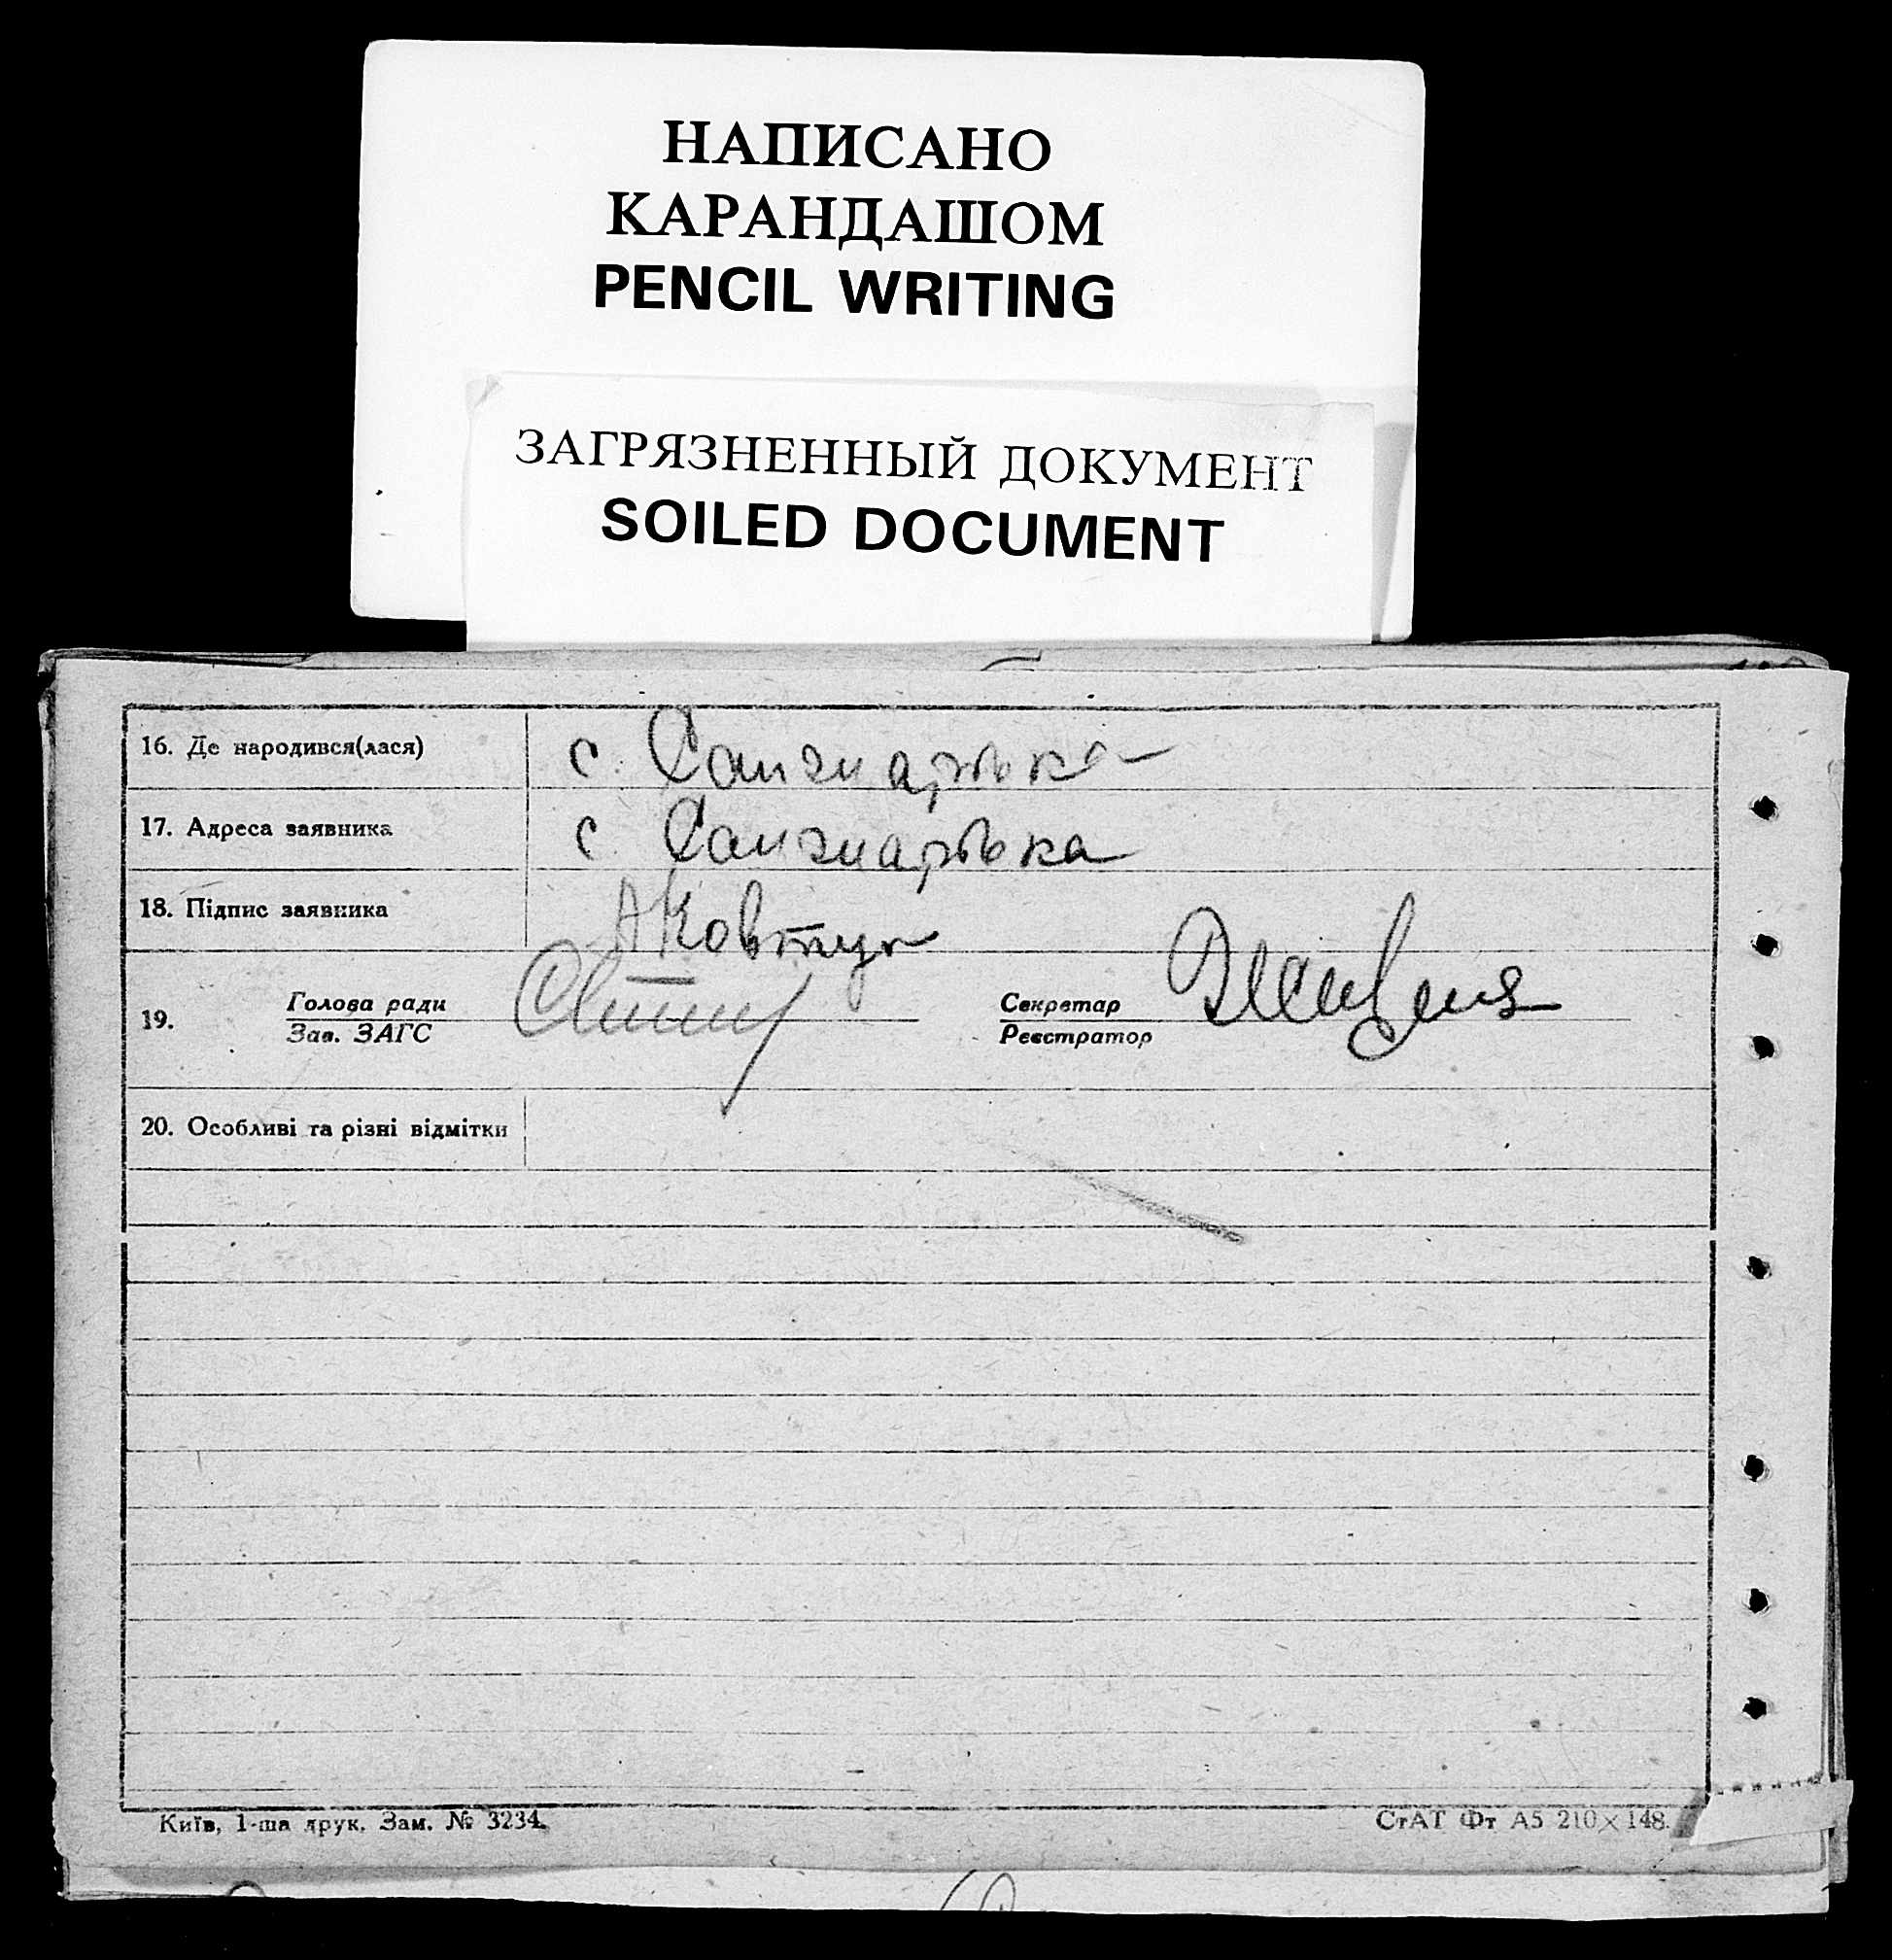 НАПИСАНО
КАРАНДАШОМ
PENCIL WRITING
ЗАГРЯЗНЕННЫЙ ДОКУМЕНТ
SOILED DOCUMENT
16. Де народився(лася) с.
17. Адреса заявника с.
18. Підпис заявника А Ковтун
19. Голова ради Секретар
Зав. ЗАГС Реєстратор
20. Особливі та різні відмітки
Київ, 1-ша друк. Зам. № 3234. СтАТ Фт А5 210×148.